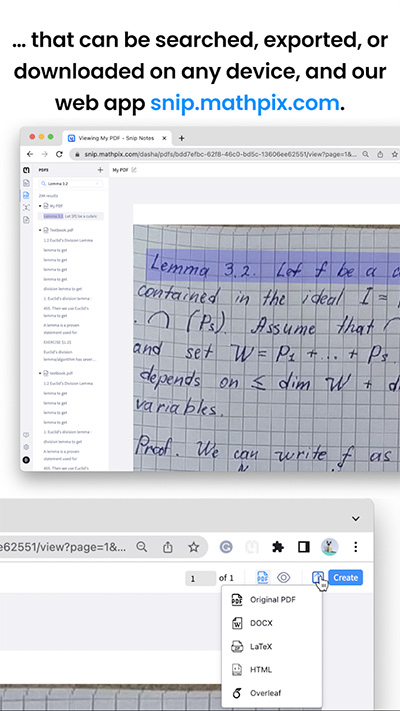 ... that can be searched, exported, or
downloaded on any device, and our
web app snip.mathpix.com.
Viewing My PDF - Snip Notes
snip.mathpix.com/dasha/pdfs/bdd7efbc-62f8-46c0-bd5c-13606ee62551/view?page=1&...
PDFS
My PDF
Lemma 3.2
My PDF
Textbook.pdf
1.2 Euclid's Division Lemma
lemma to get
lemma to get
lemma to get
lemma to get
division lemma to get
1. Euclid's division lemma :
lemma to get
A lemma is a proven
statement used for
EXERCISE
Euclid's division
textbook.pdf
1.2 Euclid's Division Lemma
lemma to get
lemma to get
lemma to get
lemma to get
1. Euclid's division lemma :
division lemma to get
lemma to get
A lemma is a proven
statement used for
Lemma 3.2. Let f be a
contained in the ideal I =
∩ (P₃). Assume that
and set W = P₁ + ... + P₃
depends on ≤ dim W +
variables.
Proof. We can write f as
e62551/view?page=1&...
1 of 1
Create
Original PDF
DOCX
LaTeX
HTML
Overleaf